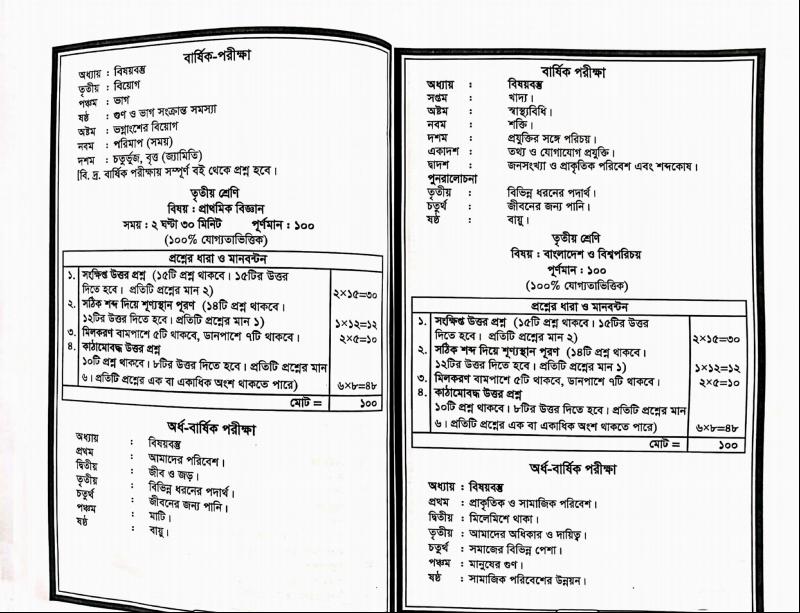 বার্ষিক-পরীক্ষা
অধ্যায় : বিষয়বস্তু
তৃতীয় : বিয়োগ
পঞ্চম : ভাগ
ষষ্ঠ : গুণ ও ভাগ সংক্রান্ত সমস্যা
অষ্টম : ভগ্নাংশের বিয়োগ
নবম : পরিমাপ (সময়)
দশম : চতুর্ভুজ, বৃত্ত (জ্যামিতি)
[বি. দ্র. বার্ষিক পরীক্ষায় সম্পূর্ণ বই থেকে প্রশ্ন হবে।
তৃতীয় শ্রেণি
বিষয় : প্রাথমিক বিজ্ঞান
সময় : ২ ঘণ্টা ৩০ মিনিট পূর্ণমান : ১০০
(১০০% যোগ্যতাভিত্তিক)
প্রশ্নের ধারা ও মানবন্টন
১. সংক্ষিপ্ত উত্তর প্রশ্ন (১৫টি প্রশ্ন থাকবে। ১৫টির উত্তর
দিতে হবে। প্রতিটি প্রশ্নের মান ২) ২×১৫=৩০
২. সঠিক শব্দ দিয়ে শূণ্যস্থান পূরণ (১৪টি প্রশ্ন থাকবে।
১২টির উত্তর দিতে হবে। প্রতিটি প্রশ্নের মান ১) ১×১২=১২
৩. মিলকরণ বামপাশে ৫টি থাকবে, ডানপাশে ৭টি থাকবে। ২×৫=১০
৪. কাঠামোবদ্ধ উত্তর প্রশ্ন
১০টি প্রশ্ন থাকবে। ৮টির উত্তর দিতে হবে। প্রতিটি প্রশ্নের মান
৬। প্রতিটি প্রশ্নের এক বা একাধিক অংশ থাকতে পারে) ৬×৮=৪৮
মোট = ১০০
অর্ধ-বার্ষিক পরীক্ষা
অধ্যায় : বিষয়বস্তু
প্রথম : আমাদের পরিবেশ।
দ্বিতীয় : জীব ও জড়।
তৃতীয় : বিভিন্ন ধরনের পদার্থ।
চতুর্থ : জীবনের জন্য পানি।
পঞ্চম : মাটি।
ষষ্ঠ : বায়ু।
বার্ষিক পরীক্ষা
অধ্যায় : বিষয়বস্তু
সপ্তম : খাদ্য।
অষ্টম : স্বাস্থ্যবিধি।
নবম : শক্তি।
দশম : প্রযুক্তির সঙ্গে পরিচয়।
একাদশ : তথ্য ও যোগাযোগ প্রযুক্তি।
দ্বাদশ : জনসংখ্যা ও প্রাকৃতিক পরিবেশ এবং শব্দকোষ।
পুনরালোচনা
তৃতীয় : বিভিন্ন ধরনের পদার্থ।
চতুর্থ : জীবনের জন্য পানি।
ষষ্ঠ : বায়ু।
তৃতীয় শ্রেণি
বিষয় : বাংলাদেশ ও বিশ্বপরিচয়
পূর্ণমান : ১০০
(১০০% যোগ্যতাভিত্তিক)
প্রশ্নের ধারা ও মানবন্টন
১. সংক্ষিপ্ত উত্তর প্রশ্ন (১৫টি প্রশ্ন থাকবে। ১৫টির উত্তর
দিতে হবে। প্রতিটি প্রশ্নের মান ২) ২×১৫=৩০
২. সঠিক শব্দ দিয়ে শূণ্যস্থান পূরণ (১৪টি প্রশ্ন থাকবে।
১২টির উত্তর দিতে হবে। প্রতিটি প্রশ্নের মান ১) ১×১২=১২
৩. মিলকরণ বামপাশে ৫টি থাকবে, ডানপাশে ৭টি থাকবে। ২×৫=১০
৪. কাঠামোবদ্ধ উত্তর প্রশ্ন
১০টি প্রশ্ন থাকবে। ৮টির উত্তর দিতে হবে। প্রতিটি প্রশ্নের মান
৬। প্রতিটি প্রশ্নের এক বা একাধিক অংশ থাকতে পারে) ৬×৮=৪৮
মোট = ১০০
অর্ধ-বার্ষিক পরীক্ষা
অধ্যায় : বিষয়বস্তু
প্রথম : প্রাকৃতিক ও সামাজিক পরিবেশ।
দ্বিতীয় : মিলেমিশে থাকা।
তৃতীয় : আমাদের অধিকার ও দায়িত্ব।
চতুর্থ : সমাজের বিভিন্ন পেশা।
পঞ্চম : মানুষের গুণ।
ষষ্ঠ : সামাজিক পরিবেশের উন্নয়ন।